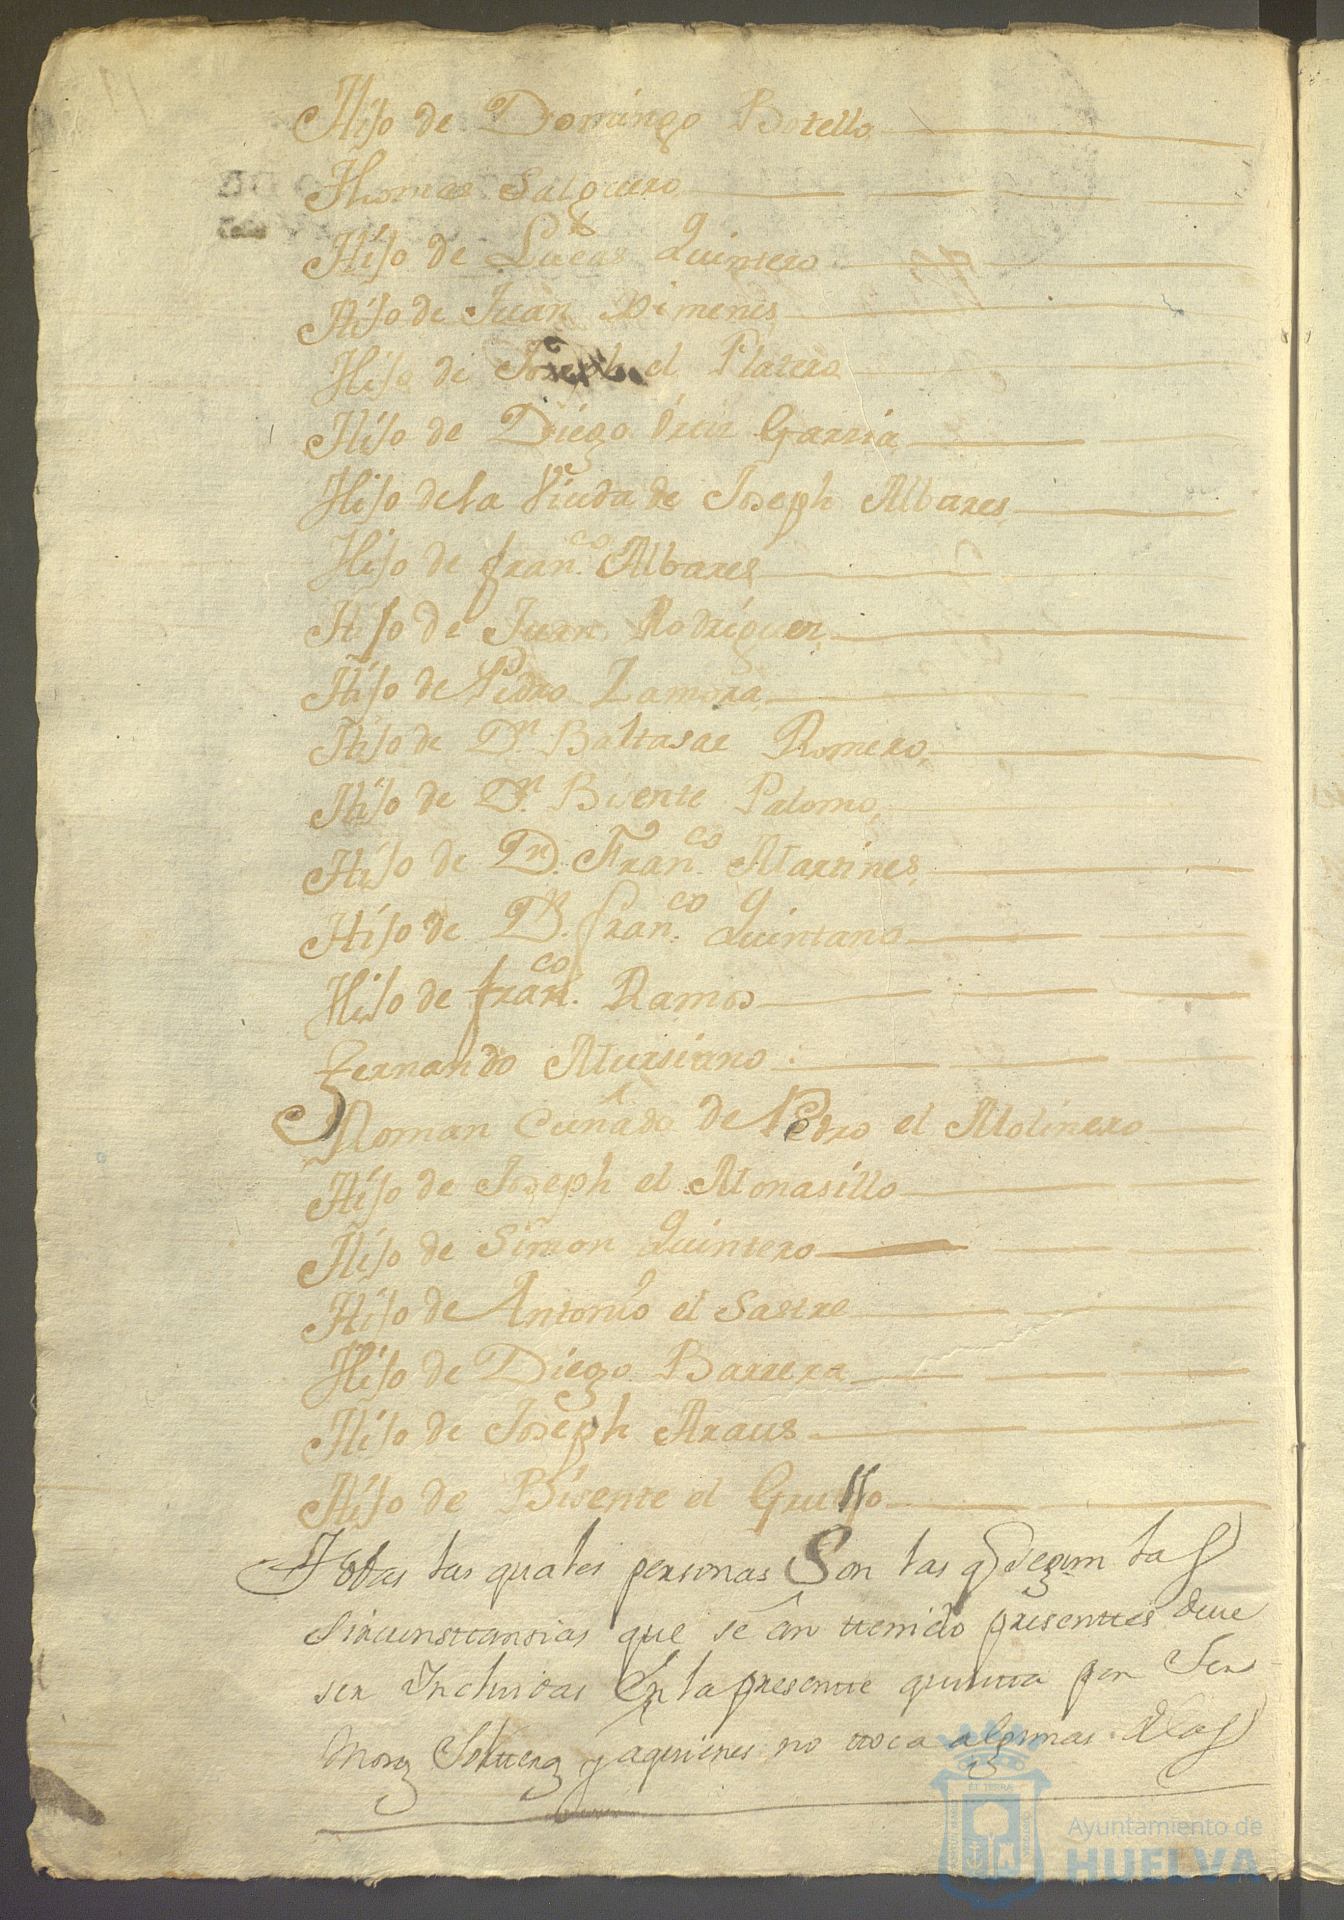 Hijo de Domingo Botello
Thomas Salguero
Hijo de Lucas Quintero
Hijo de Juan Ximenes
Hijo de Joseph el Platero
Hijo de Diego Garzia
Hijo de la Viuda de Joseph Albares
Hijo de fran.co Albares
Hijo de Juan Rodriguez
Hijo de Pedro Zamora
Hijo de Dn. Baltasar Romero
Hijo de Dn. Bisente Palomo
Hijo de Dn. Fran.co Martines
Hijo de Dn. fran.co Quintano
Hijo de fran.co Ramos
Fernando Mursiano
Roman Cuñado de Pedro el Molinero
Hijo de Joseph el Monasillo
Hijo de Simon Quintero
Hijo de Antonio el Sastre
Hijo de Diego Barrera
Hijo de Joseph Araus
Hijo de Bisente el Grullo
Todas las quales personas Son las q
Sircunsttansias que se an ttenido presenttes deve
ser Incluidas En la presentte quintta por Ser
Mozs Soltteros y aquienes no ttoca algunas delas
Ayuntamiento de
HUELVA